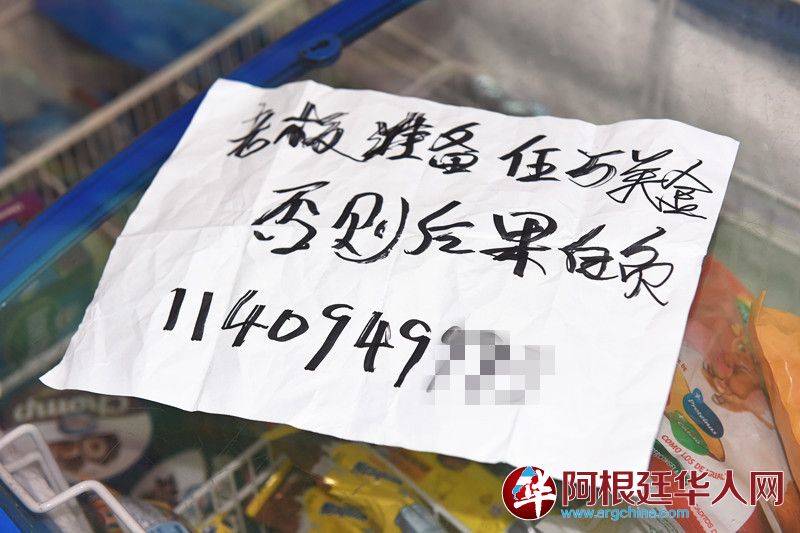 老板准备伍万美金
否则后果自负
1140949
Chomp
Proteínas
COMO LOS DE
阿根廷华人网
www.argchina.com